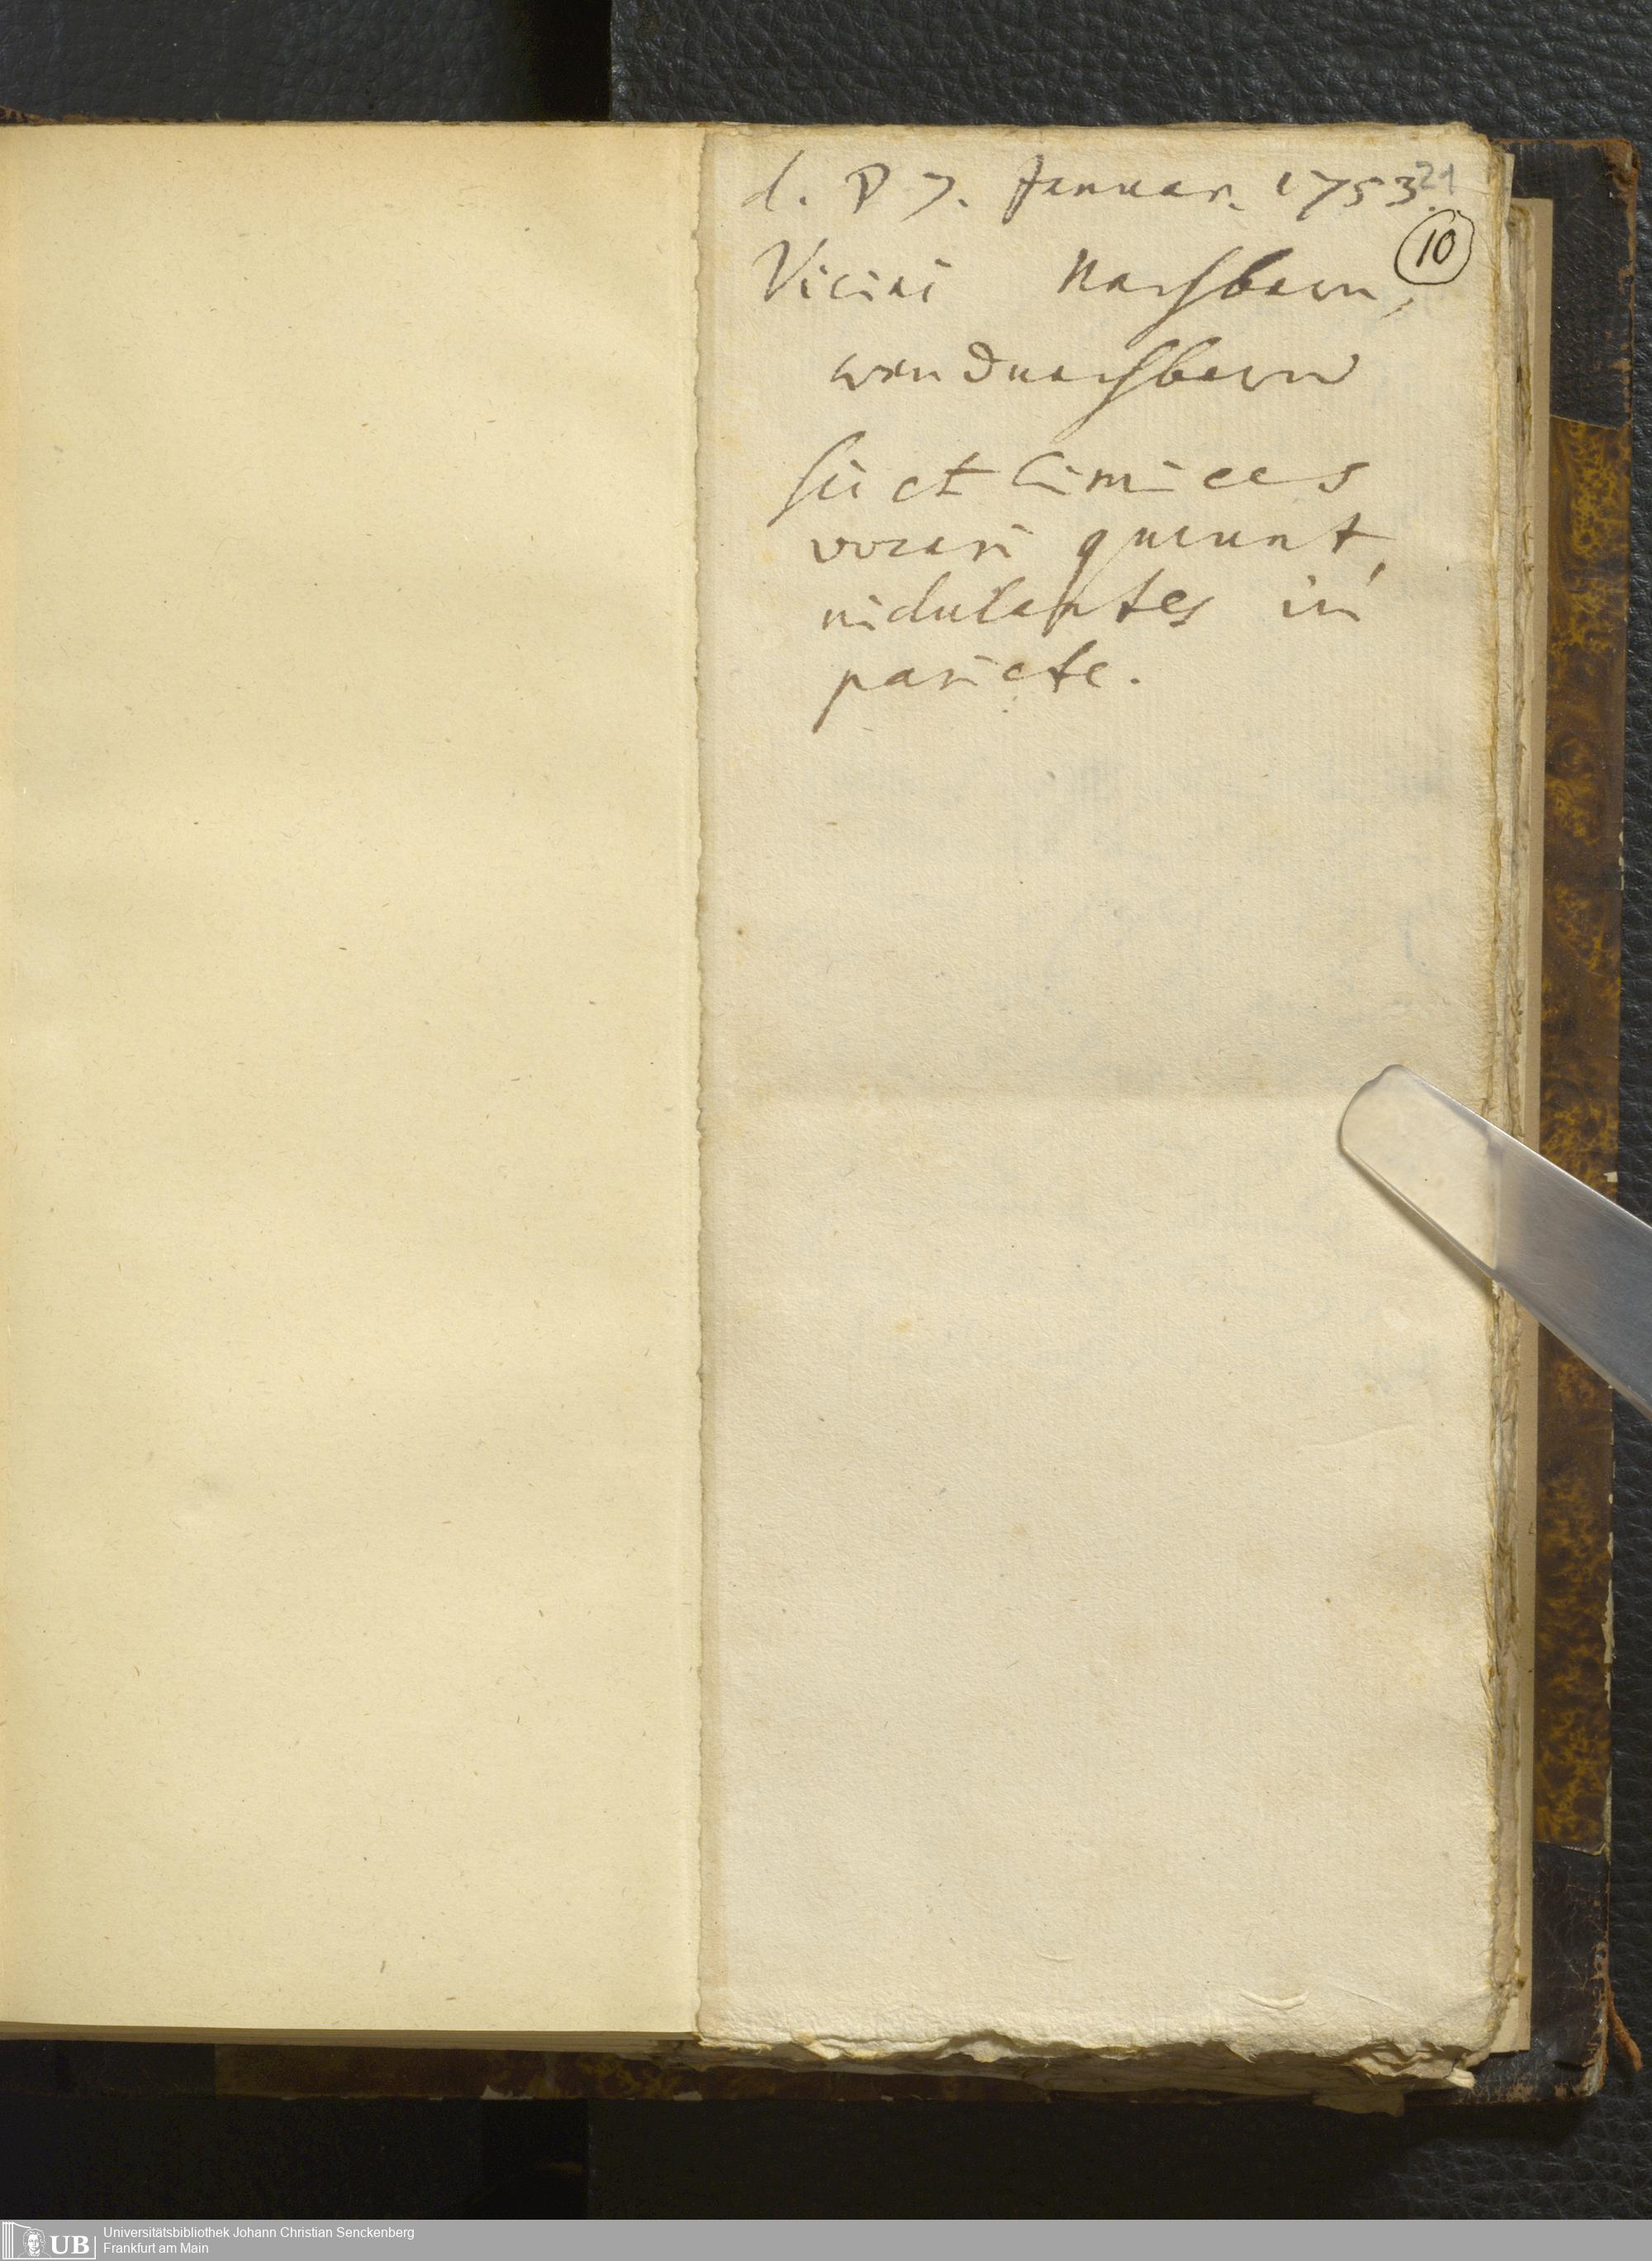 d. D 7. Januar. 1753. 21
10
Vicini Nachbarn,
wandnachbarn
sic et Cimices
vocari queunt,
nidulantes in
pariete.
UB Universitätsbibliothek Johann Christian Senckenberg
Frankfurt am Main